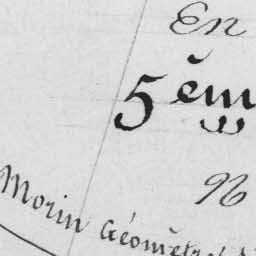 En
5ém
Morin Géomètr